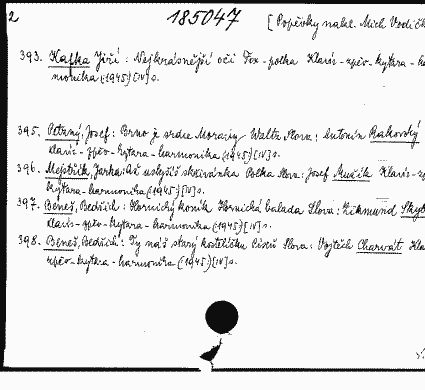 2 185047 [Popěvky nakl. Mich Vodičk
393. Kafka Jiří: Nejkrásnější oči Fox-polka Klavír-zpěv-kytara-ha
monika (1945) [IV] s.
395. Petrný, Josef: Brno je srdce Moravy Waltz Slova: Antonín Rakovský
Klavír-zpěv-kytara-harmonika (1945) [IV] s.
396. Mejstřík, Jarka: Až uslyšíš skřivánka Polka Slova: Josef Klavír-zp
kytara-harmonika (1945) [IV] s.
397. Beneš, Bedřich: Hornický koník Hornická balada Slova: Zikmund
Klavír-zpěv-kytara-harmonika (1945) [IV] s.
398. Beneš, Bedřich: Ty náš starý kostelíčku Píseň Slova: Vojtěch Charvát Kla
zpěv-kytara-harmonika (1945) [IV] s.